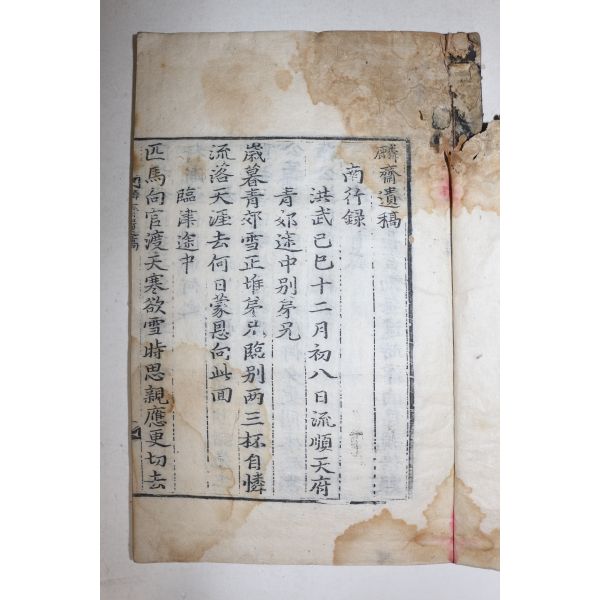 麟齋遺稿
南行録
洪武己巳十二月初八日流順天府
青郊途中别㐧兄
歳暮青郊雪正堆㐧兄臨别两三杯自憐
流落天涯去何日蒙恩向此回
臨津途中
匹馬向官渡天寒欲雪時思親應更切去